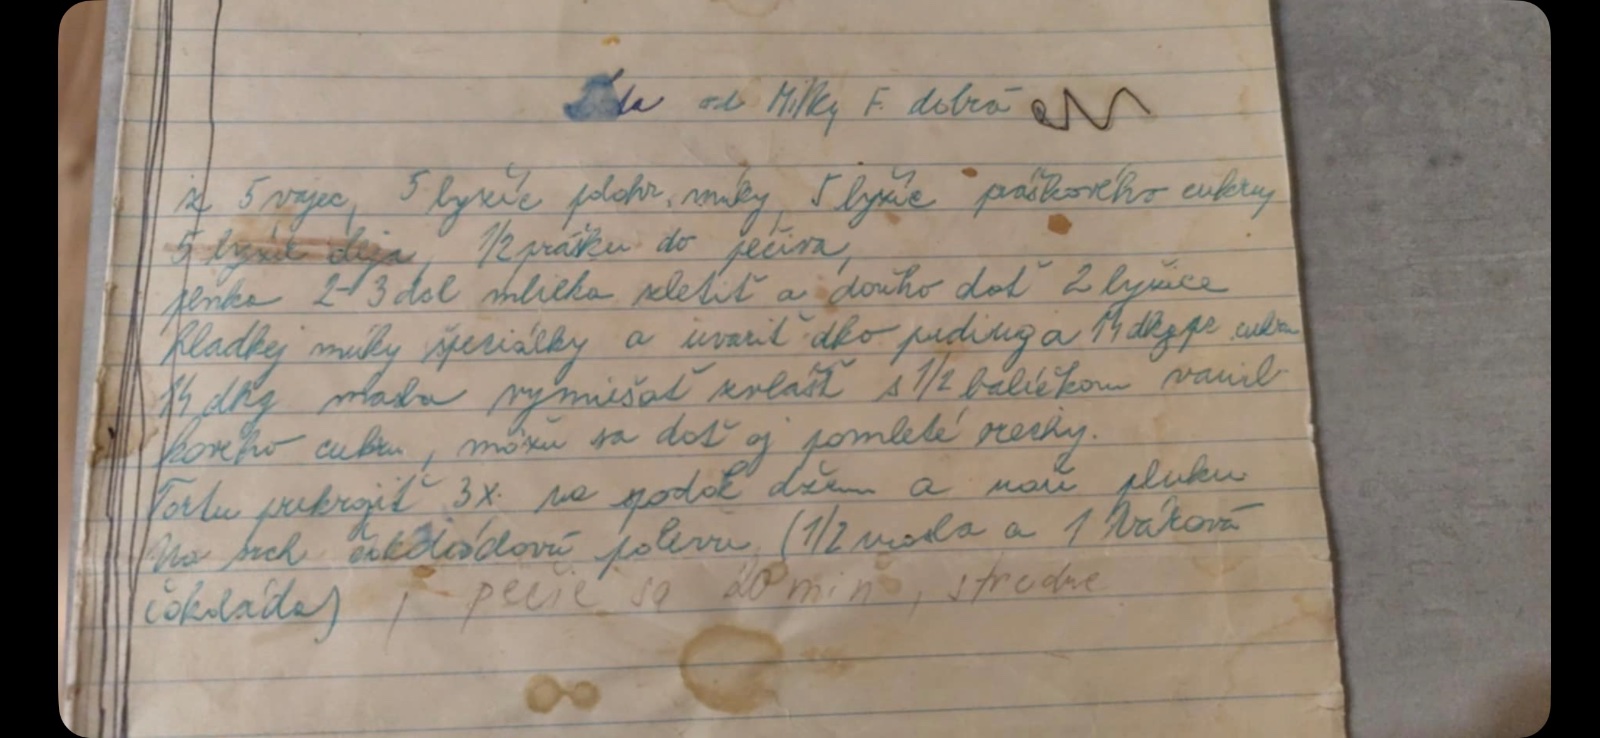 od Milky F. dobrá
z 5 vajec, 5 lyžíc polohr. múky, 5 lyžíc práškového cukru
5 lyžíc oleja, 1/2 prášku do pečiva,
plnka 2-3 dcl mlieka zletiť a doňho dať 2 lyžice
hladkej múky špeciálky a uvariť ako puding a 14 dkg pr. cukru
14 dkg masla vymiešať zvlášť s 1/2 balíčkom vanil-
kového cukru, môžu sa dať aj pomleté orechy.
Tortu prekrojiť 3x. na spodok džem a navr plnku
Na vrch čokoládovú polevu (1/2 masla a 1 Váková
čokoláda), pečie sa 20 min, stredne